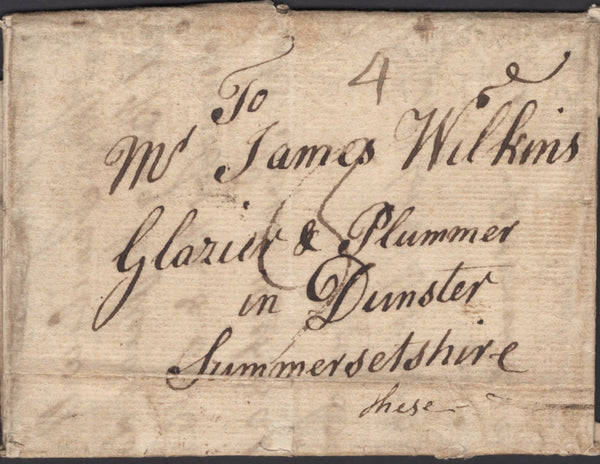 4
To
Mr James Wilkins
Glazier & Plummer
in Dunster
Summersetshire
these